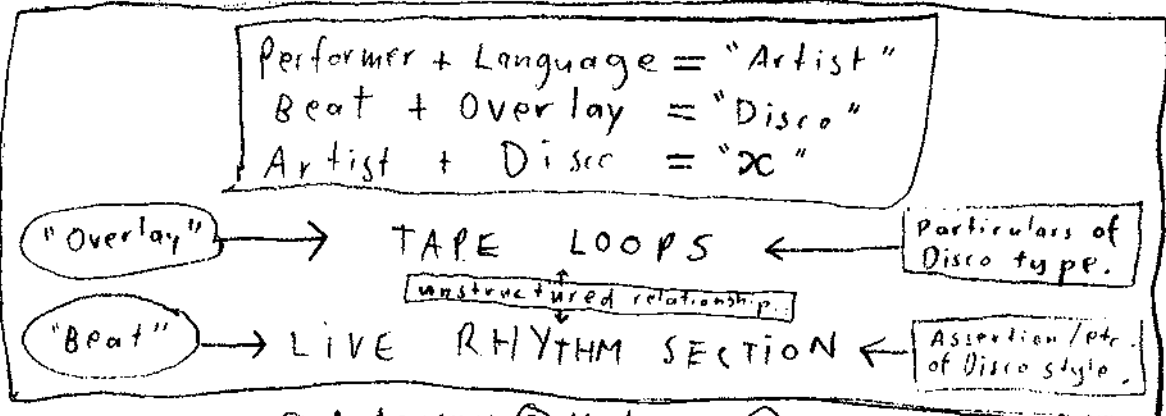 Performer + Language = "Artist"
Beat + Overlay = "Disco"
Artist + Disco = "x"
"Overlay" → TAPE LOOPS ← Particulars of
Disco type.
unstructured relationship.
"Beat" → LIVE RHYTHM SECTION ← Assertion/etc.
of Disco style.